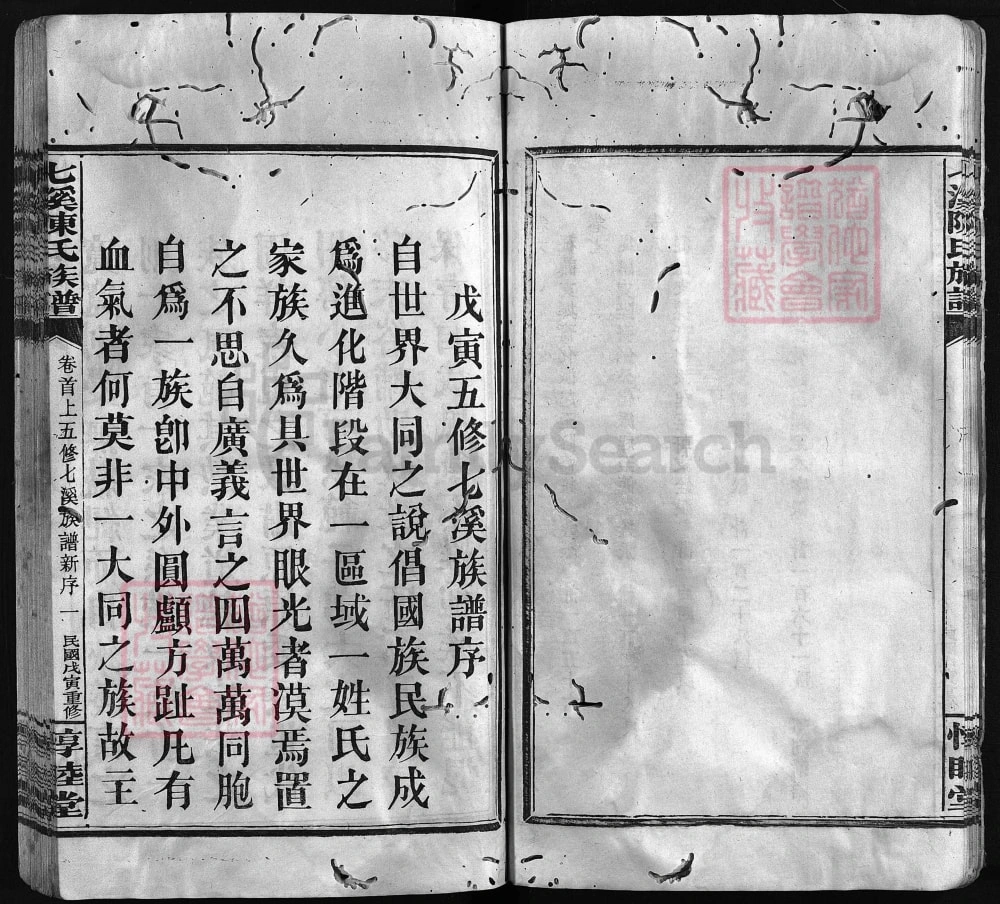 戊寅五修七溪族譜序
自世界大同之說倡國族民族成
爲進化階段在一區域一姓氏之
家族久爲具世界眼光者漠焉置
之不思自廣義言之四萬萬同胞
自爲一族卽中外圓顱方趾凡有
血氣者何莫非一大同之族故主
七溪陳氏族譜
卷首上 五修七溪族譜新序 一 民國戊寅重修
惇睦堂
FamilySearch